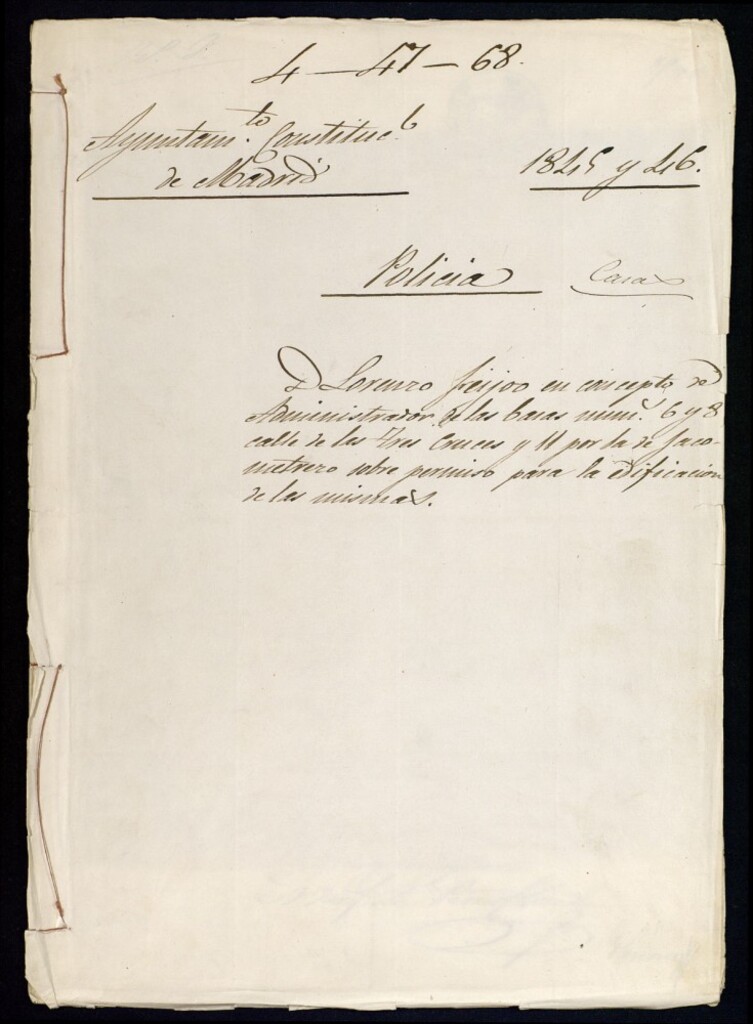 4-47-68.
Ayuntam.to Constituc.l
de Madrid
1845 y 46.
Policia
Casas
D Lorenzo Feijoo en concepto de
Administrador de las Casas núm.s 6 y 8
calle de las Tres Cruces y 11 por la de Jaco-
metrezo sobre permiso para la edificacion
de las mismas.